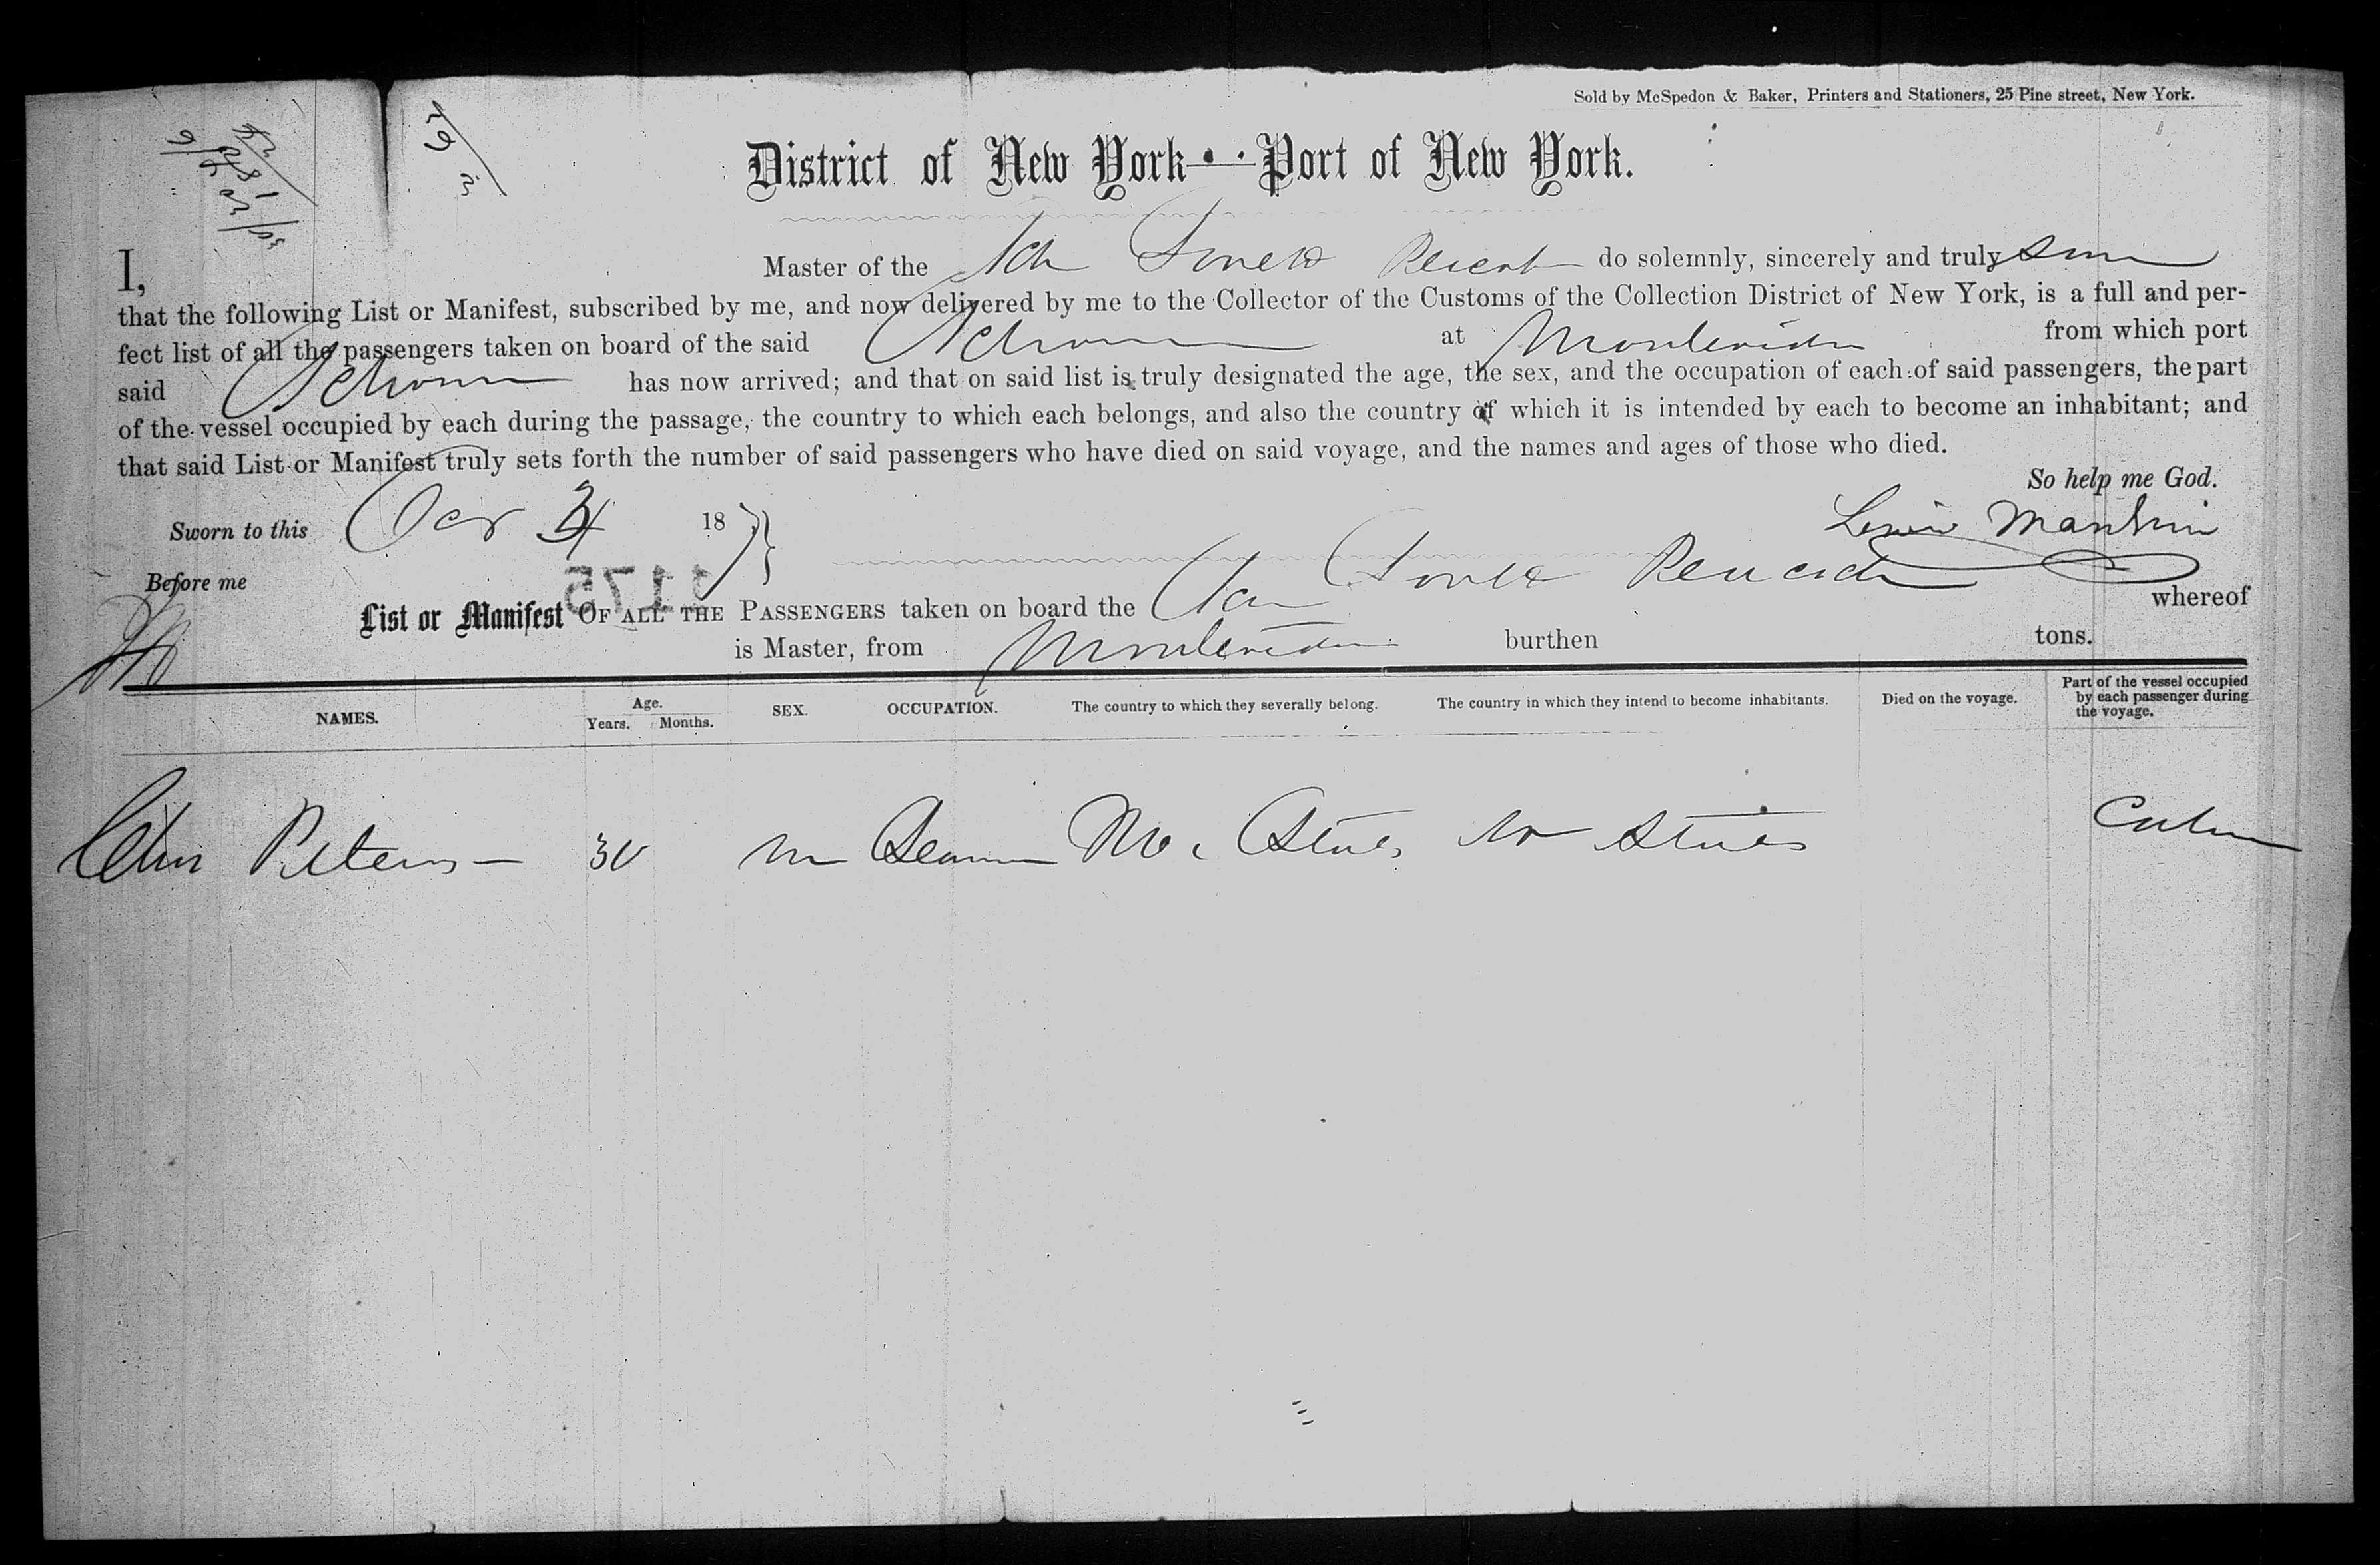 Sold by McSpedon & Baker, Printers and Stationers, 25 Pine street, New York.
District of New York—Port of New York.
I, Master of the Sch do solemnly, sincerely and truly
that the following List or Manifest, subscribed by me, and now delivered by me to the Collector of the Customs of the Collection District of New York, is a full and per-
fect list of all the passengers taken on board of the said Schooner at Montevideo from which port
said Schooner has now arrived; and that on said list is truly designated the age, the sex, and the occupation of each of said passengers, the part
of the vessel occupied by each during the passage, the country to which each belongs, and also the country of which it is intended by each to become an inhabitant; and
that said List or Manifest truly sets forth the number of said passengers who have died on said voyage, and the names and ages of those who died.
So help me God.
Sworn to this Oct 18
Before me
1175
List or Manifest OF ALL THE PASSENGERS taken on board the whereof
is Master, from Montevideo burthen tons.
NAMES. Age. Years. Months. SEX. OCCUPATION. The country to which they severally belong. The country in which they intend to become inhabitants. Died on the voyage. Part of the vessel occupied by each passenger during the voyage.
Peters 30 m Seaman States States Cabin